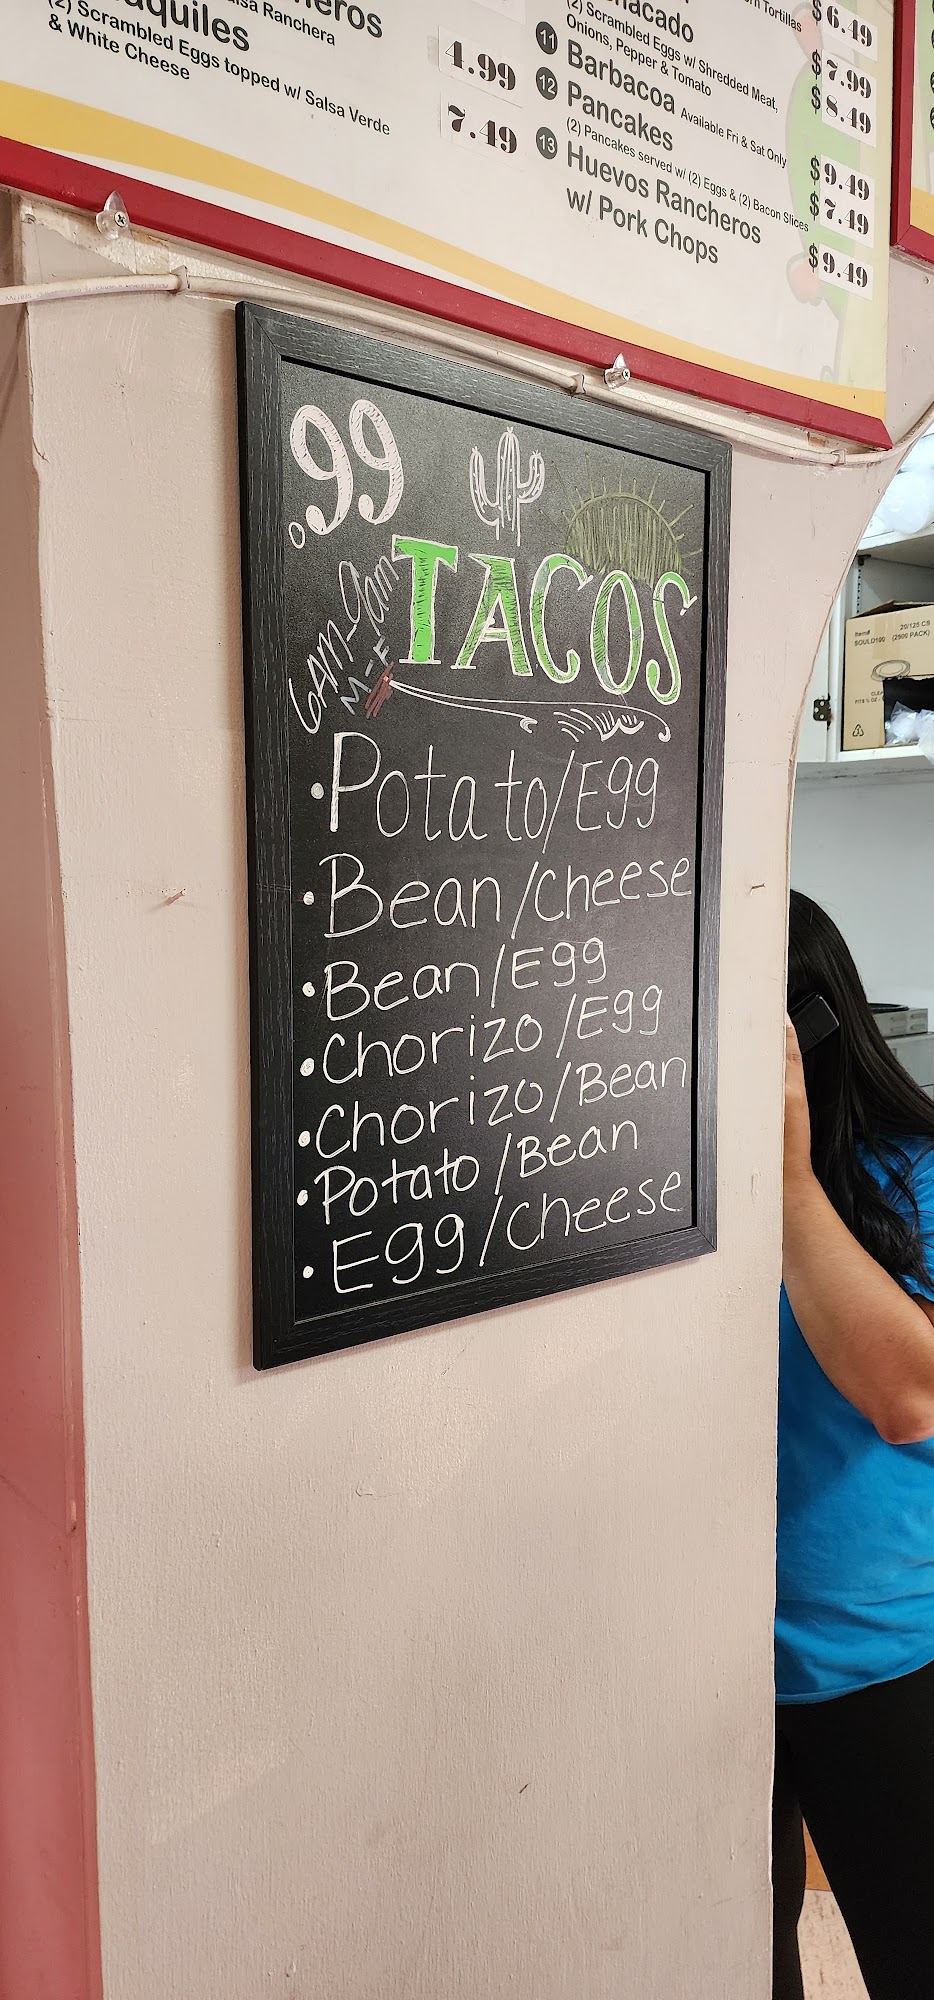 Salsa Ranchera
(2) Scrambled Eggs topped w/ Salsa Verde
& White Cheese
4.99
7.49
Tortillas
$6.49
(2) Scrambled Eggs w/ Shredded Meat,
Onions, Pepper & Tomato
$7.99
11 Barbacoa Available Fri & Sat Only
$8.49
12 Pancakes
(2) Pancakes served w/ (2) Eggs & (2) Bacon Slices
$9.49
$7.49
13 Huevos Rancheros
w/ Pork Chops
$9.49
.99
TACOS
6AM-9am
M-F
• Potato/Egg
• Bean/Cheese
• Bean/Egg
• Chorizo/Egg
• Chorizo/Bean
• Potato/Bean
• Egg/Cheese
Item#
SOULD100
20/125 CS
(2500 PACK)